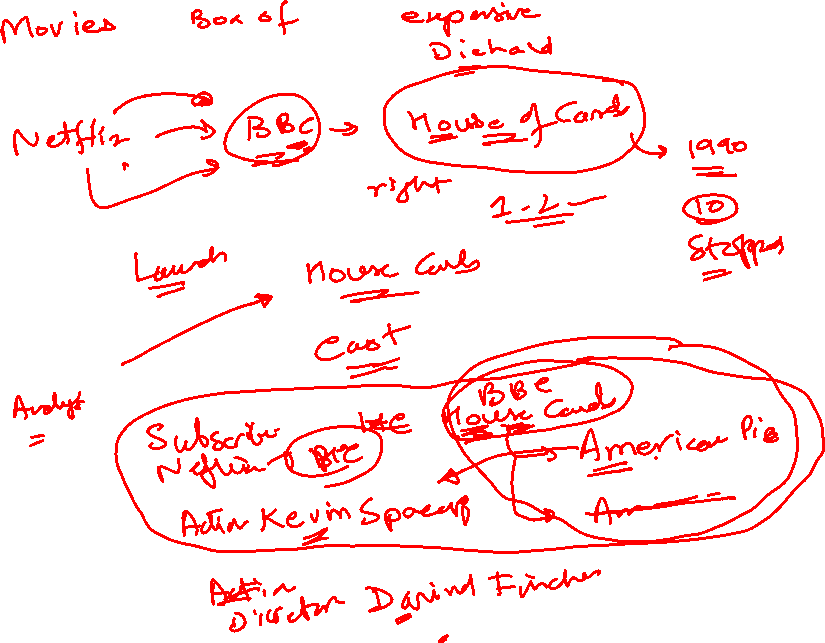 Movies Box of expensive
Diehard
Netflix BBC House of Cards
1990
right 1-2
10
Stopped
Launch House Cards
Cast
Analyst
BBC
House Cards
Subscribe
Netflix BBC American Pie
Actor Kevin Spacey
Director David Fincher